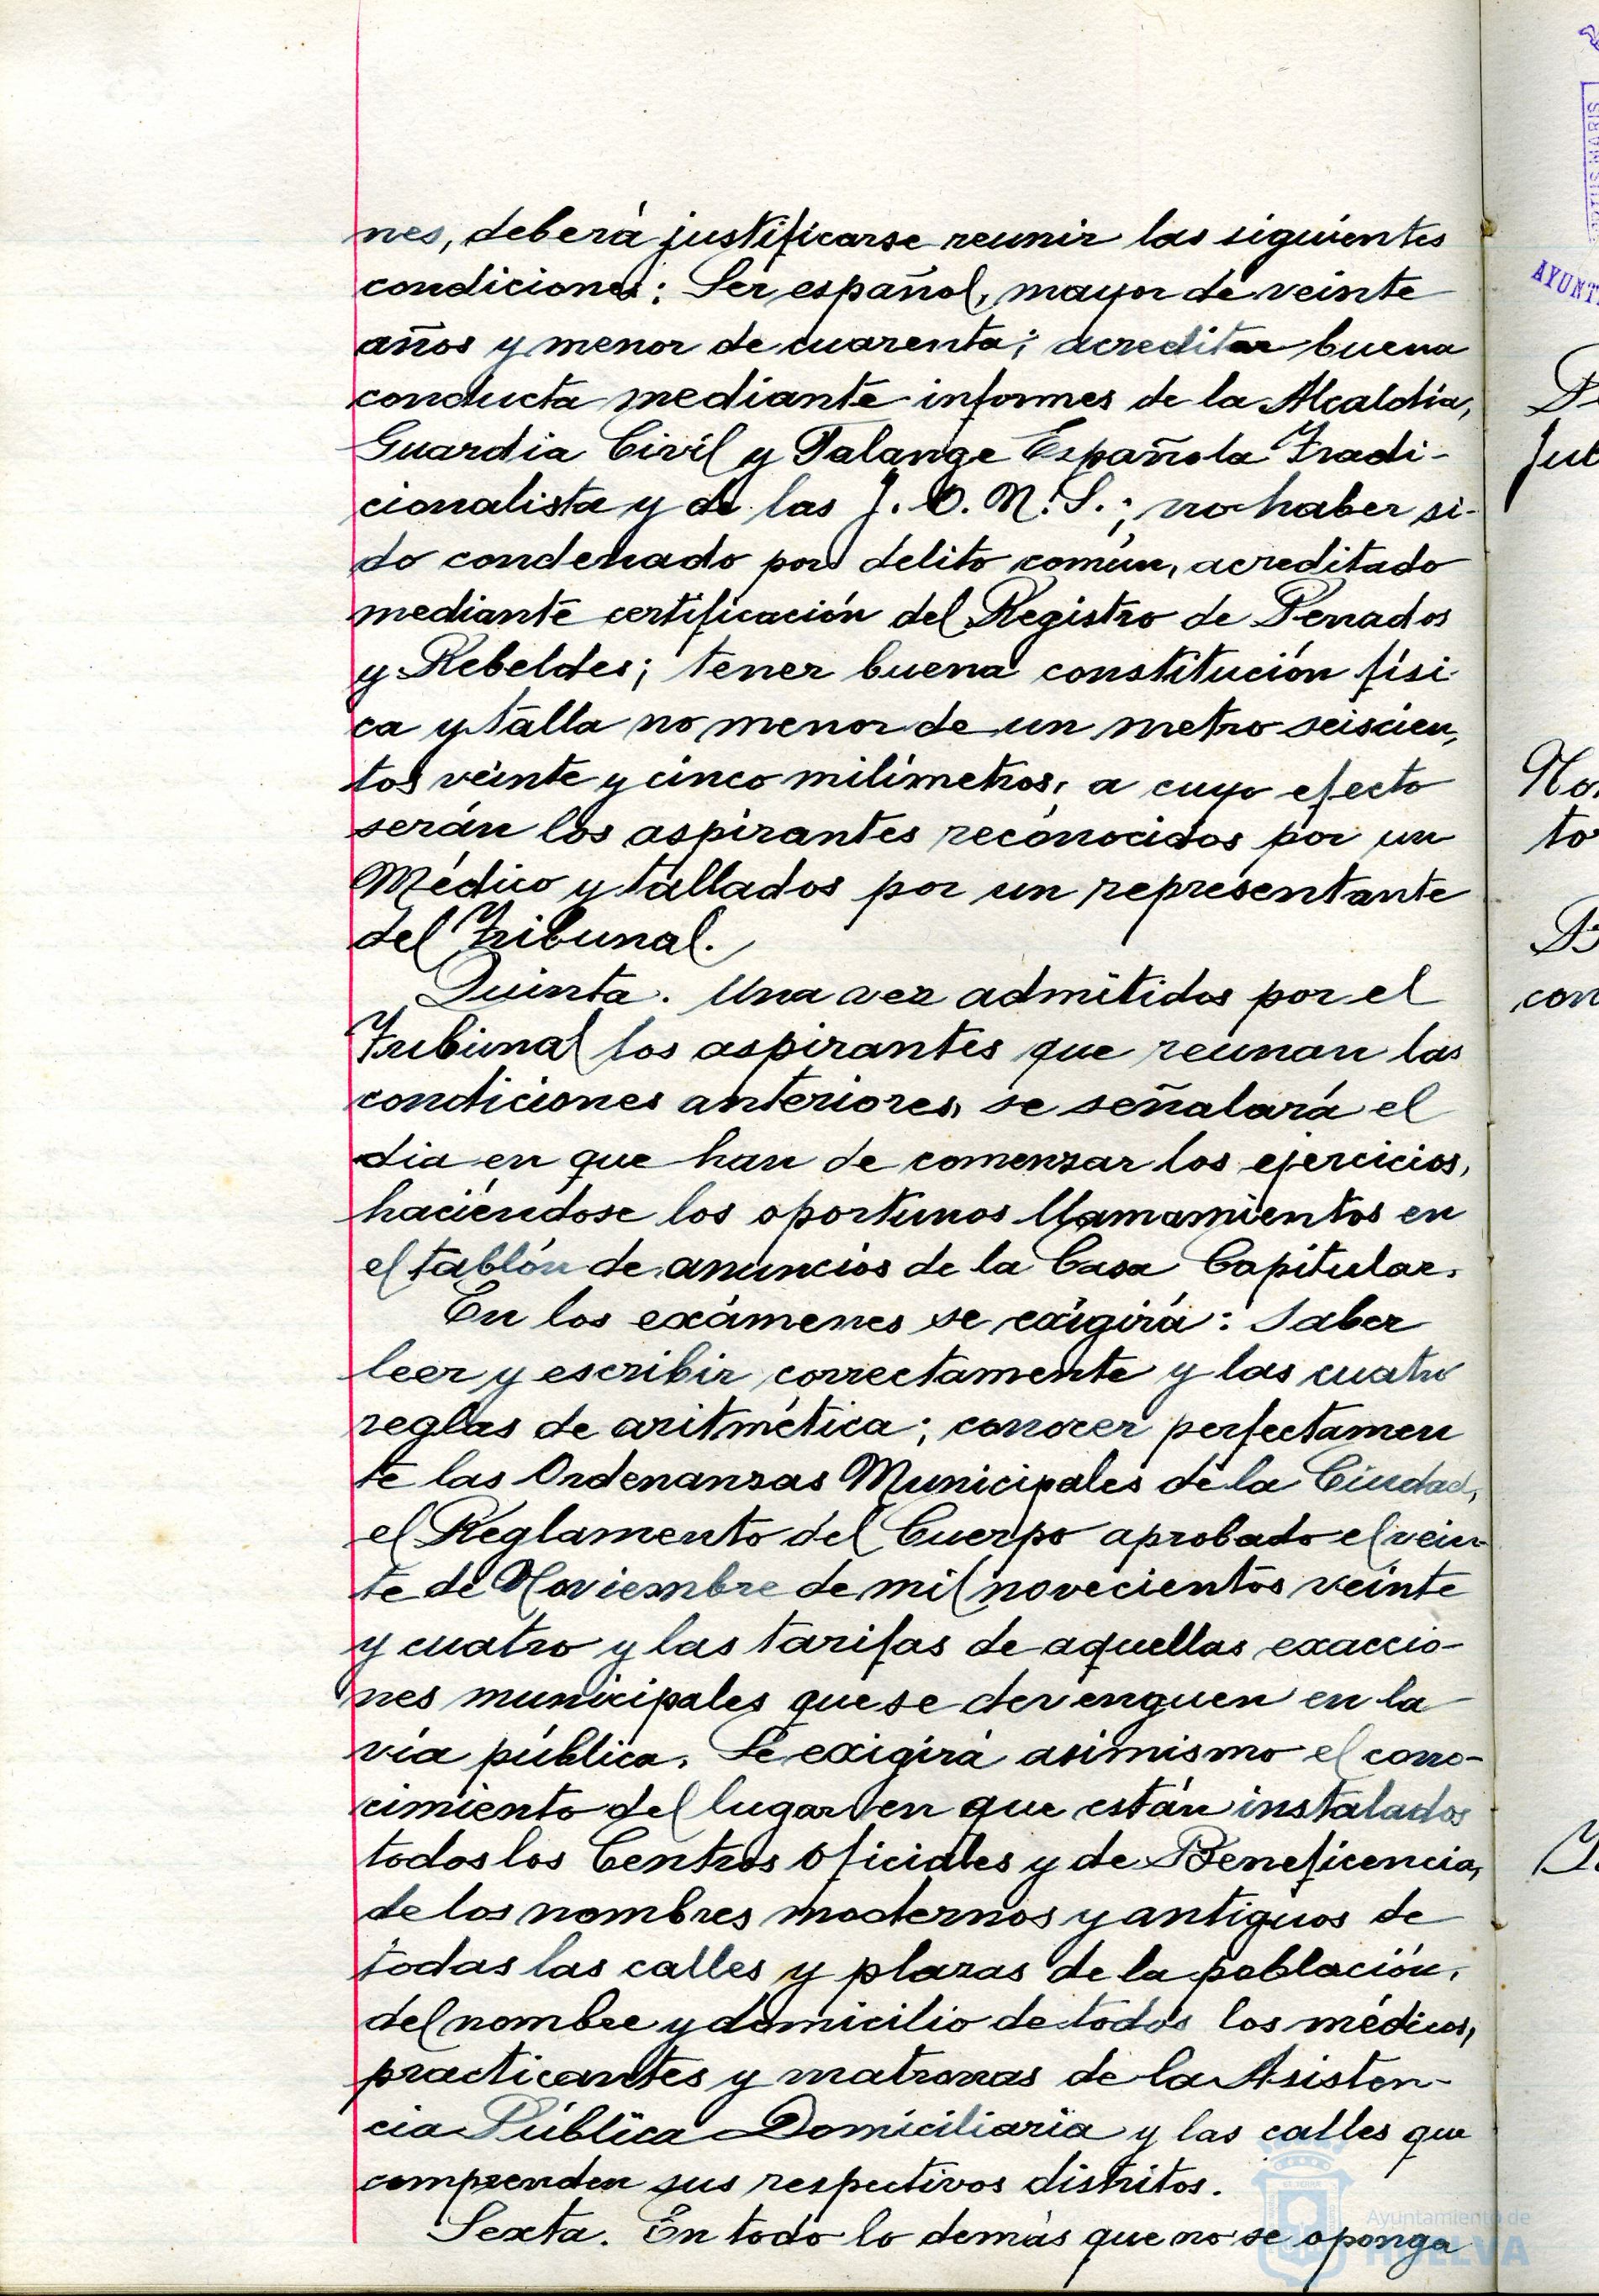 nes, deberá justificarse reunir las siguientes
condiciones: Ser español, mayor de veinte
años y menor de cuarenta; acreditar buena
conducta mediante informes de la Alcaldía,
Guardia Civil y Falange Española Tradi-
cionalista y de las J. O. N. S.; no haber si-
do condenado por delito común, acreditado
mediante certificación del Registro de Penados
y Rebeldes; tener buena constitución físi-
ca y talla no menor de un metro seiscien-
tos veinte y cinco milímetros, a cuyo efecto
serán los aspirantes reconocidos por un
Médico y tallados por un representante
del Tribunal.
Quinta. Una vez admitidos por el
Tribunal los aspirantes que reunan las
condiciones anteriores, se señalará el
dia en que han de comenzar los ejercicios,
haciéndose los oportunos llamamientos en
el tablón de anuncios de la Casa Capitular.
En los exámenes se exigirá: Saber
leer y escribir correctamente y las cuatro
reglas de aritmética; conocer perfectamen
te las Ordenanzas Municipales de la Ciudad,
el Reglamento del Cuerpo aprobado el vein-
te de Noviembre de mil novecientos veinte
y cuatro y las tarifas de aquellas exaccio-
nes municipales que se devenguen en la
vía pública. Se exigirá asimismo el cono-
cimiento del lugar en que están instalados
todos los Centros Oficiales y de Beneficencia,
de los nombres modernos y antiguos de
todas las calles y plazas de la población,
del nombre y domicilio de todos los médicos,
practicantes y matronas de la Asisten-
cia Pública Domiciliaria y las calles que
comprenden sus respectivos distritos.
Sexta. En todo lo demás que no se oponga
Ayuntamiento de
HUELVA